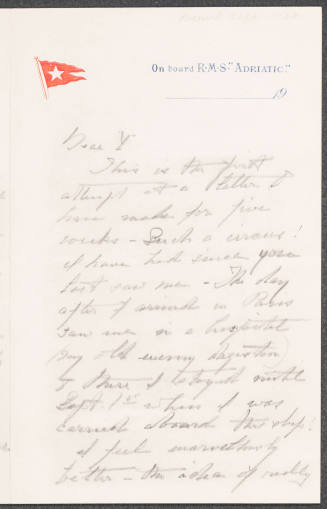 On board R·M·S "ADRIATIC."
19
Dear Y
This is the first
attempt at a letter I
have made for five
weeks – Such a circus!
I have had since you
last saw me – The day
after I arrived in Paris
saw me in a hospital
my old enemy digestion
& there I stayed until
Sept. 1st when I was
carried aboard this ship!
I feel marvelously
better – the idea of really